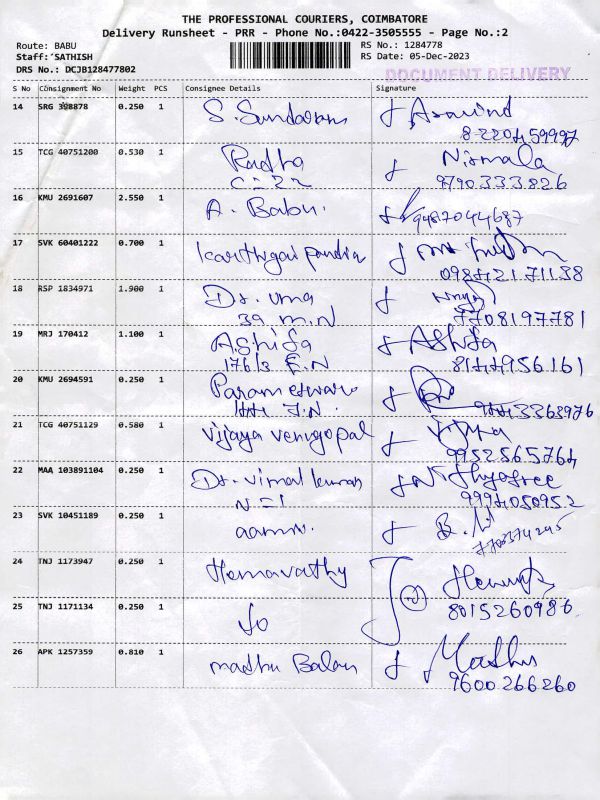 THE PROFESSIONAL COURIERS, COIMBATORE
Delivery Runsheet - PRR - Phone No.:0422-3505555 - Page No.:2
Route: BABU RS No.: 1284778
Staff: SATHISH RS Date: 05-Dec-2023
DRS No.: DCJB128477802 DOCUMENT DELIVERY
S No Consignment No Weight PCS Consignee Details Signature
14 SRG 0.250 1 S. Sundaram Aravind
15 TCG 40751200 0.530 1 Radha Nirmala
9790333826
16 KMU 2691607 2.550 1 A. Babu. 9487044687
17 SVK 60401222 0.700 1 Karthigai pandia
18 RSP 1834971 1.900 1 Dr. uma
39 m.N 7708197781
19 MRJ 170412 1.100 1 Ashifa Ashifa
176/3 8144956161
20 KMU 2694591 0.250 1 Parameswari
21 TCG 40751129 0.580 1 Vijaya venugopal
9952565764
22 MAA 103891104 0.250 1 Dr. vimal kumaran
N=1 9994050952
23 SVK 10451189 0.250 1
24 TNJ 1173947 0.250 1 Hemavathy
8015260986
25 TNJ 1171134 0.250 1
26 APK 1257359 0.810 1 madhu Balan Madhu
9600266260